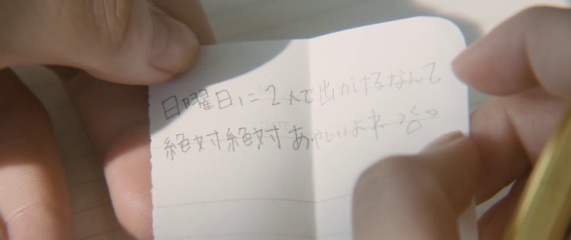 日曜日に2人で出かけるなんて
絶対絶対あやしいよねーー